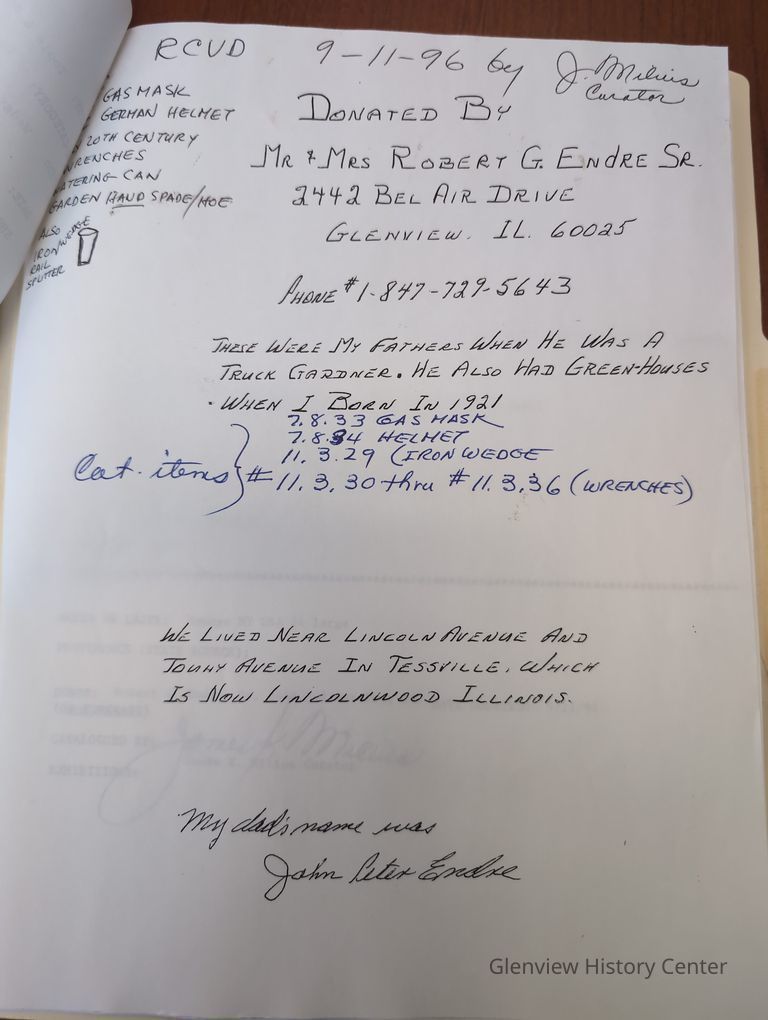 RCVD 9-11-96 by J. Milius
Curator
GAS MASK
GERMAN HELMET
20TH CENTURY
WRENCHES
WATERING CAN
GARDEN HAND SPADE/HOE
ALSO
IRON WEDGE
RAIL
SPLITTER
DONATED BY
MR & MRS ROBERT G. ENDRE SR.
2442 BEL AIR DRIVE
GLENVIEW. IL. 60025
PHONE # 1-847-729-5643
THESE WERE MY FATHERS WHEN HE WAS A
TRUCK GARDNER. HE ALSO HAD GREEN-HOUSES
WHEN I BORN IN 1921
7.8.33 GAS MASK
7.8.34 HELMET
11.3.29 (IRON WEDGE
Cat. items } # 11.3.30 thru # 11.3.36 (WRENCHES)
WE LIVED NEAR LINCOLN AVENUE AND
TOUHY AVENUE IN TESSVILLE. WHICH
IS NOW LINCOLNWOOD ILLINOIS.
My dad's name was
John Peter Endre
Glenview History Center